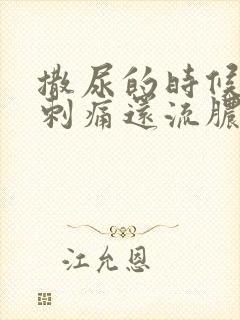 撒尿的時候
刺痛還流膿
江允恩